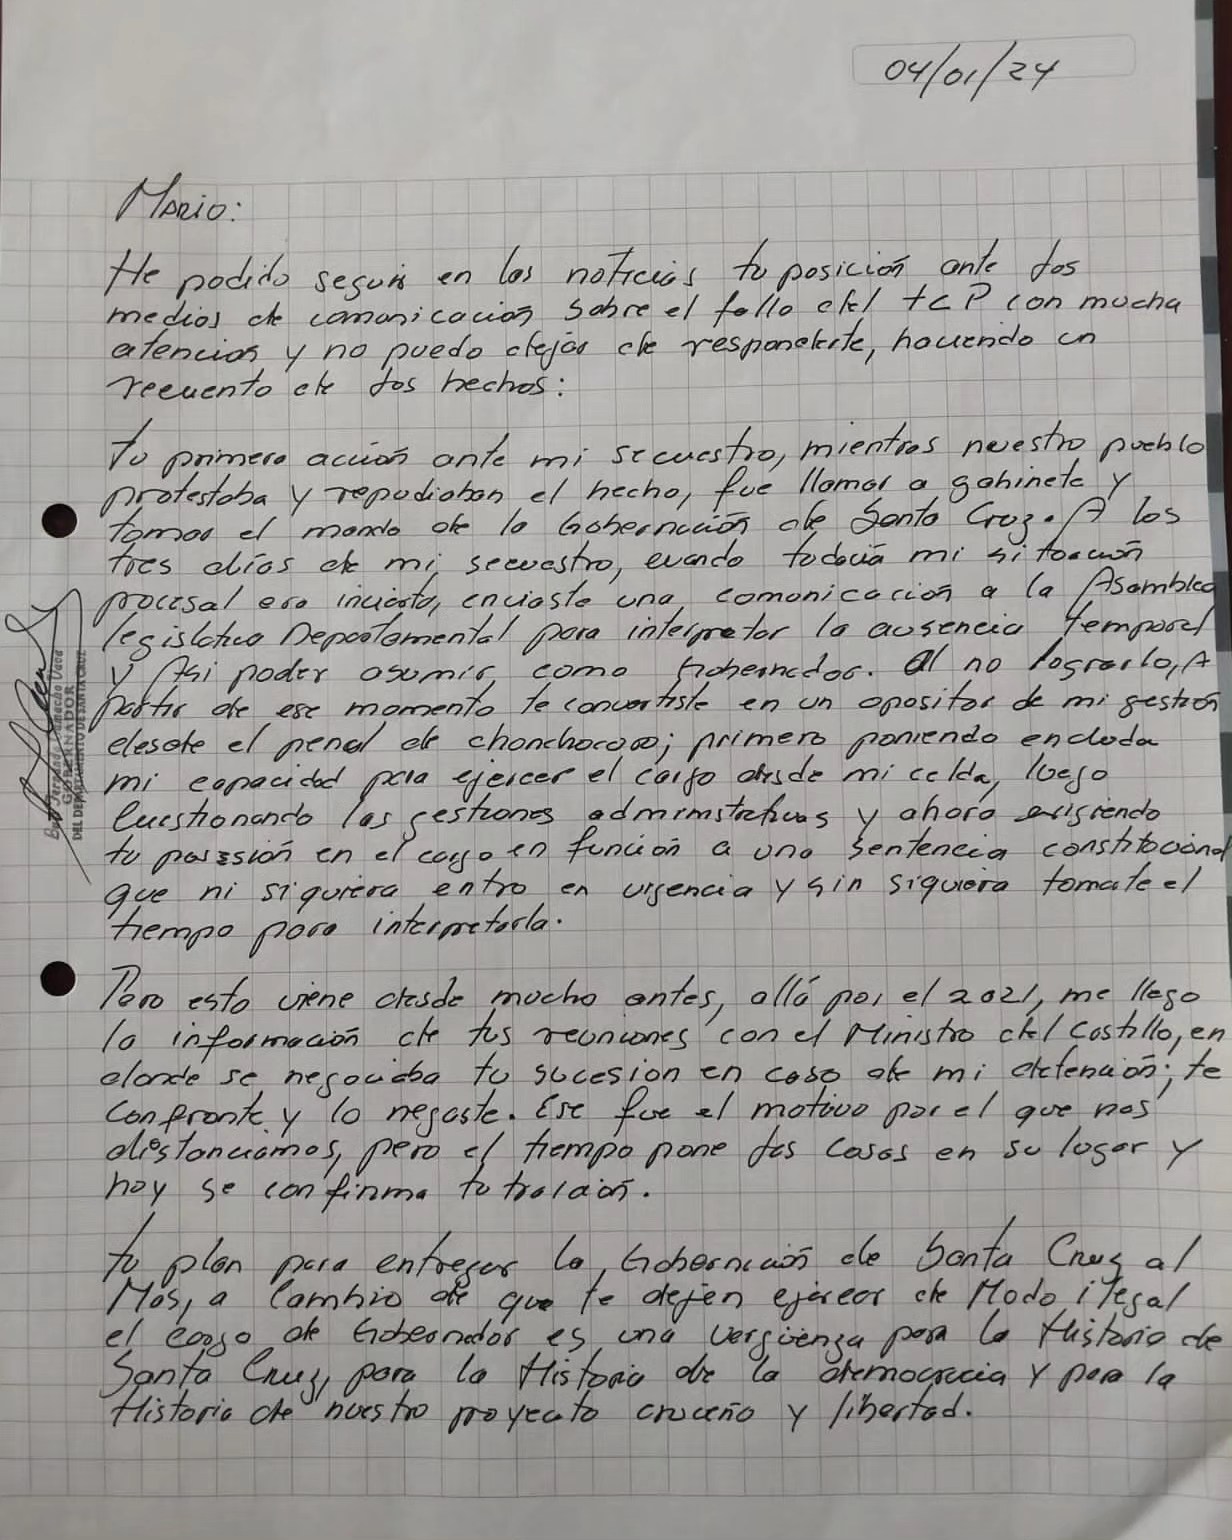 04/01/24
Mario:
He podido seguir en las noticias tu posición ante los
medios de comunicación sobre el fallo del TCP con mucha
atención y no puedo dejar de responderte, haciendo un
recuento de los hechos:
Tu primera acción ante mi secuestro, mientras nuestro pueblo
protestaba y repudiaban el hecho, fue llamar a gabinete y
tomar el mando de la Gobernación de Santa Cruz. A los
tres días de mi secuestro, cuando todavía mi situación
procesal era incierta, enviaste una comunicación a la Asamblea
legislativa Departamental para interpretar la ausencia temporal
y Asi poder asumir como Gobernador. Al no lograrlo, A
partir de ese momento te convertiste en un opositor de mi gestión
desde el penal de chonchocoro; primero poniendo en duda
mi capacidad para ejercer el cargo desde mi celda, luego
Cuestionando las gestiones administrativas y ahora exigiendo
tu posesión en el cargo en función a una sentencia constitucional
que ni siquiera entro en vigencia y sin siquiera tomarte el
tiempo para interpretarla.
Pero esto viene desde mucho antes, allá por el 2021, me llego
la información de tus reuniones con el Ministro del Castillo, en
donde se negociaba tu sucesión en caso de mi detención; te
confronte y lo negaste. Ese fue el motivo por el que nos
distanciamos, pero el tiempo pone las cosas en su lugar y
hoy se confirma tu traición.
Tu plan para entregar la Gobernación de Santa Cruz al
Mas, a Cambio de que te dejen ejercer de Modo ilegal
el cargo de Gobernador es una vergüenza para la Historia de
Santa Cruz, para la Historia de la democracia y para la
Historia de nuestro proyecto cruceño y libertad.
Fernando Camacho Vaca
GOBERNADOR
DEL DEPARTAMENTO DE SANTA CRUZ